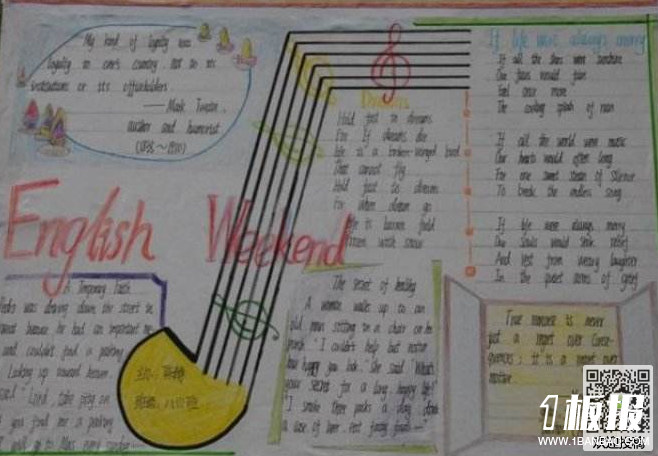 My kind of loyalty was
loyalty to one's country, not to its
institutions or its officeholders.
—— Mark Twain,
author and humorist
English Weekend
Dreams
Hold fast to dreams
For if dreams die
life is a broken-winged bird
That cannot fly
Hold fast to dreams
For when dream go
life is barren field
If life were always merry
If all the skies were sunshine
Our faces would fain
Feel once more
The cooling splash of rain
If all the world were music
Our hearts would often long
For one sweet strain of silence
To break the endless song
If life were always merry
Our souls would seek relief
And rest from weary laughter
In the quiet arms of grief
A Temporary Faith
was driving down the street in
because he had an important
and couldn't find a parking
Looking up toward heaven
said " Lord, take pity on
you find me a parking
go to Mass every sunday
八(1)班
The secret of healthy
A woman walks up to an
old man sitting in a chair on his
porch. " I couldn't help but notice
how happy you look." She said "What's
your secret for a long happy life?"
"I smoke three packs a day, drink
a case of beer, eat fatty foods——"
True remorse is never
just a regret over conse-
quences; it is a regret over
motive.
1板报
WWW.1BANBAO.COM
欢迎投稿